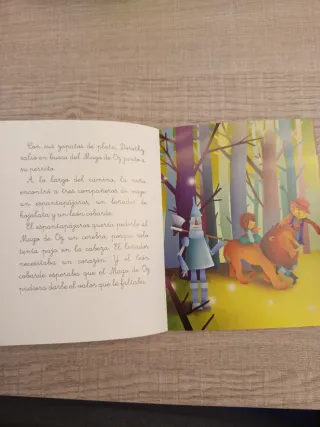 Con sus zapatos de plata, Dorothy
salió en busca del Mago de Oz junto a
su perrito.
A lo largo del camino, la niña
encontró a tres compañeros de viaje:
un espantapájaros, un leñador de
hojalata y un león cobarde.
El espantapájaros quería pedirle al
Mago de Oz un cerebro, porque solo
tenía paja en la cabeza. El leñador
necesitaba un corazón. Y el león
cobarde esperaba que el Mago de Oz
pudiera darle el valor que le faltaba.